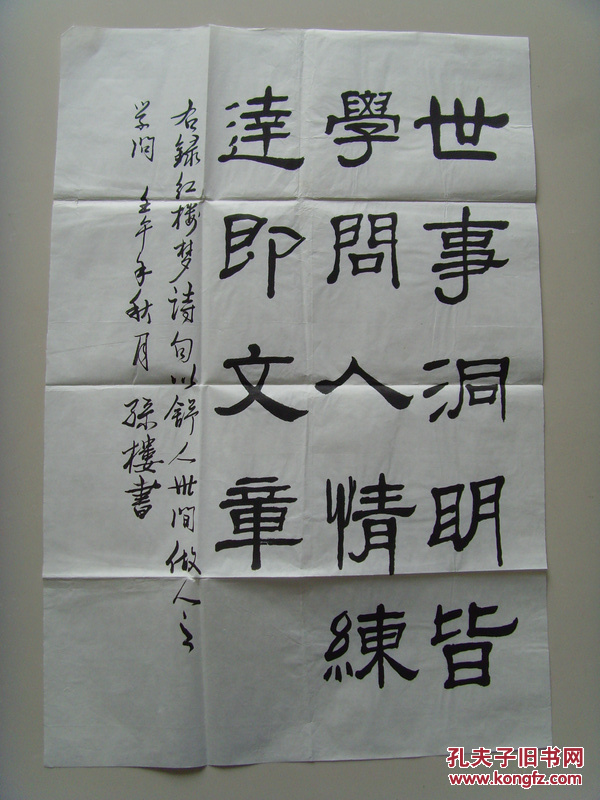 世事洞明皆
學問人情練
達即文章
右録红楼梦詩句以舒人世间做人之
学问 壬午年秋月 孫樓書
孔夫子旧书网
www.kongfz.com